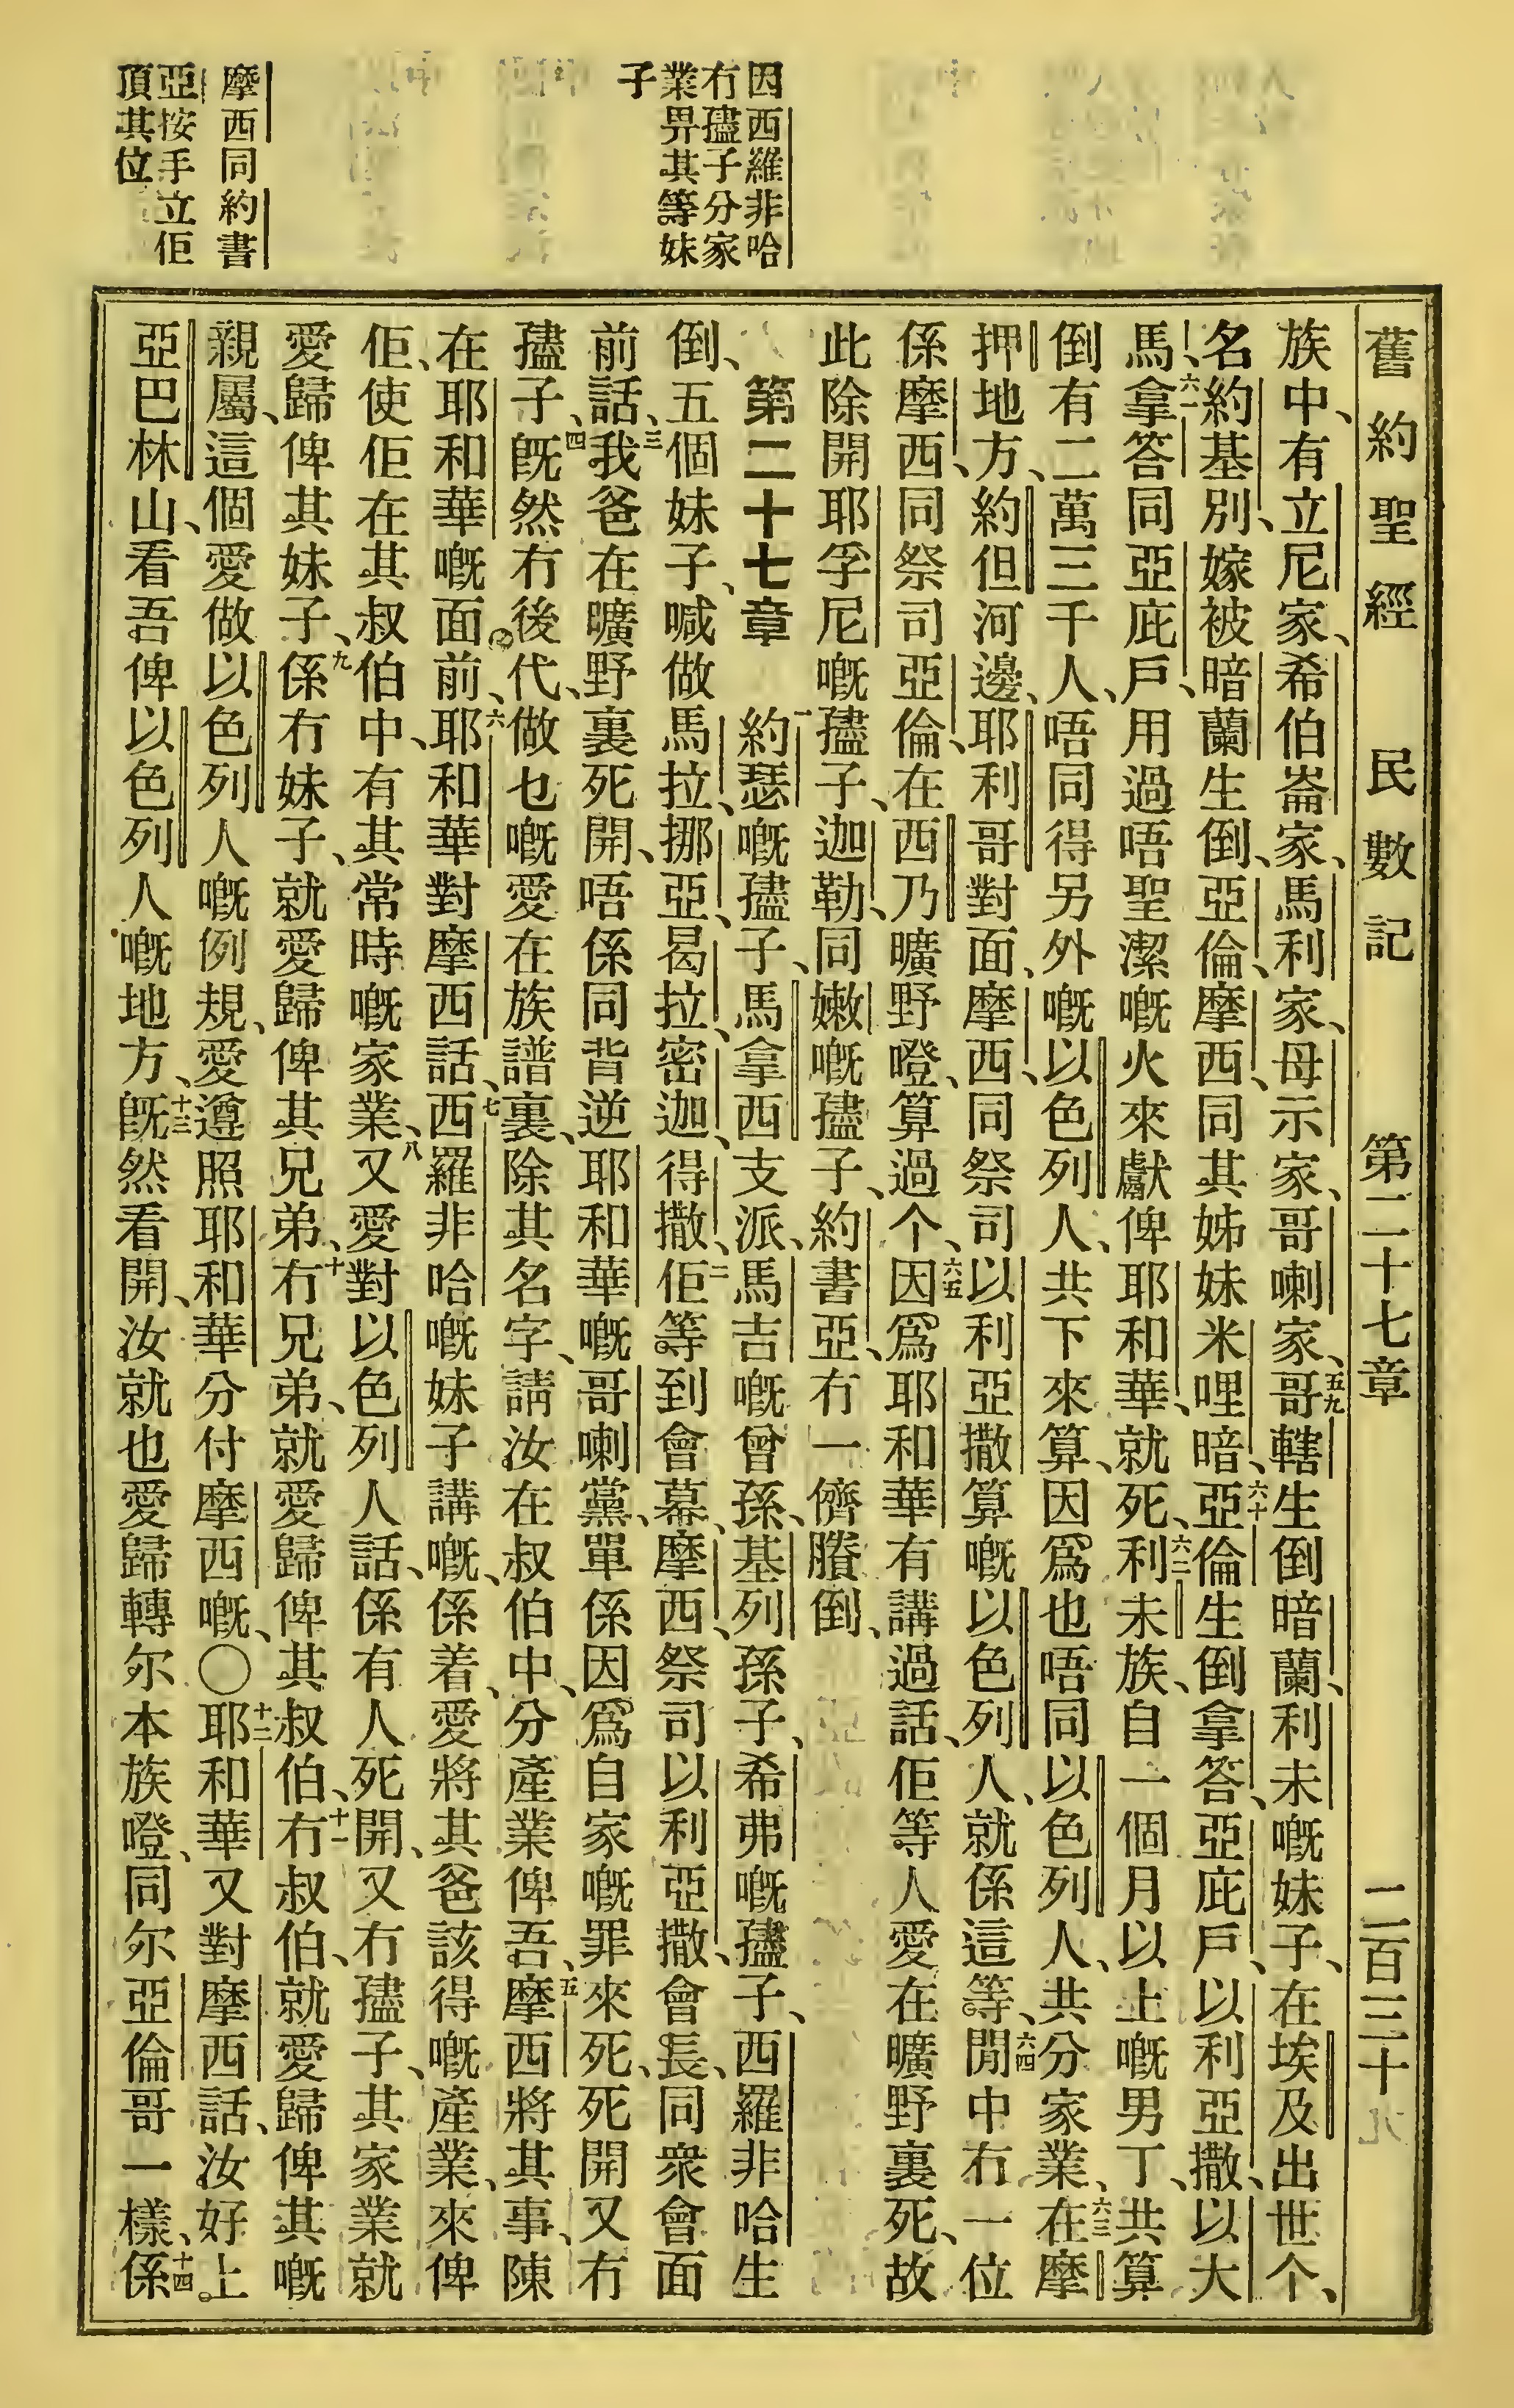 舊約聖經 民數記 第二十七章 二百三十九
因西羅非哈
冇㜽子分家
業畀其等妹
子
摩西同約書
亞按手立佢
頂其位
族中、有立尼家、希伯崙家、馬利家、母示家、哥喇家、五九哥轄生倒暗蘭、利未嘅妹子、在埃及出世个、
名約基別、嫁被暗蘭生倒、亞倫、摩西、同其姊妹米哩暗、六十亞倫生倒拿答、亞庇戶、以利亞撒、以大
馬、六一拿答同亞庇戶、用過唔聖潔嘅火來獻俾耶和華、就死、六二利未族、自一個月以上嘅男丁、共算
倒有二萬三千人、唔同得另外嘅以色列人、共下來算、因爲乜唔同以色列人、共分家業、六三在摩
押地方、約但河邊、耶利哥對面、摩西、同祭司以利亞撒算嘅以色列人、就係這等、六四閒中冇一位
係摩西、同祭司亞倫、在西乃曠野噔、算過个、六五因爲耶和華有講過話、佢等人愛在曠野裏死、故
此除開耶孚尼嘅㜽子、迦勒、同嫩嘅㜽子、約書亞、冇一儕賸倒、
第二十七章 一約瑟嘅㜽子、馬拿西支派、馬吉嘅曾孫、基列孫子、希弗嘅㜽子、西羅非哈生
倒、五個妹子、喊做馬拉、挪亞、曷拉、密迦、得撒、二佢等到會幕、摩西、祭司以利亞撒、會長、同衆會面
前話、三我爸在曠野裏死開、唔係同背逆耶和華嘅哥喇黨、單係因爲自家嘅罪來死、死開又冇
㜽子、四旣然冇後代、做乜嘅愛在族譜裏、除其名字、請汝在叔伯中、分產業俾吾、五摩西將其事、陳
在耶和華嘅面前、六耶和華對摩西話、七西羅非哈嘅妹子講嘅、係着、愛將其爸該得嘅產業、來俾
佢、使佢在其叔伯中、有其常時嘅家業、八又愛對以色列人話、係有人死開、又冇㜽子、其家業就
愛歸俾其妹子、九係冇妹子、就愛歸俾其兄弟、十冇兄弟、就愛歸俾其叔伯、十一冇叔伯、就愛歸俾其嘅
親屬、這個愛做以色列人嘅例規、愛遵照耶和華分付摩西嘅、〇十二耶和華又對摩西話、汝好上
亞巴林山、看吾俾以色列人嘅地方、十三旣然看開、汝就也愛歸轉尔本族噔、同尔亞倫哥一樣、十四係